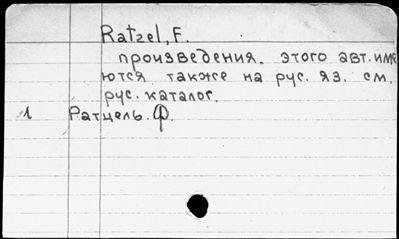 Ratzel, F.
произведения. этого авт. име
ются также на рус. яз. см.
рус. каталог.
1 Ратцель. Ф.